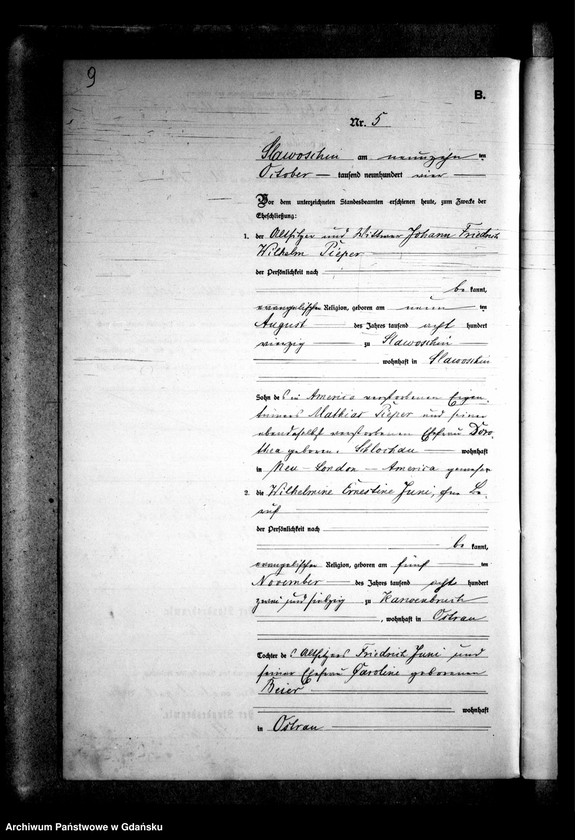 9
B.
Nr. 5
Slawoschin am neunzehn ten
October tausend neunhundert vier
Vor dem unterzeichneten Standesbeamten erschienen heute, zum Zwecke der
Eheschließung:
1. der Altsitzer und Wittwer Johann Friedrich
Wilhelm Pieper
der Persönlichkeit nach
be kannt,
evangelischer Religion, geboren am neun ten
August des Jahres tausend acht hundert
vierzig zu Slawoschin
wohnhaft in Slawoschin
Sohn des in America verstorbenen Eigen-
thümers Mathias Pieper und seiner
ebendaselbst verstorbenen Ehefrau Doro-
thea geborene wohnhaft
in Neu-London - America gewesen
2. die Wilhelmine Ernestine Juni, ohne Be-
ruf
der Persönlichkeit nach
be kannt,
evangelischer Religion, geboren am fünf ten
November des Jahres tausend acht hundert
zwei und siebzig zu
, wohnhaft in Ostrau
Tochter des Altsitzers Friedrich Juni und
seiner Ehefrau Caroline geborenen
Beier
wohnhaft
in Ostrau
Archiwum Państwowe w Gdańsku